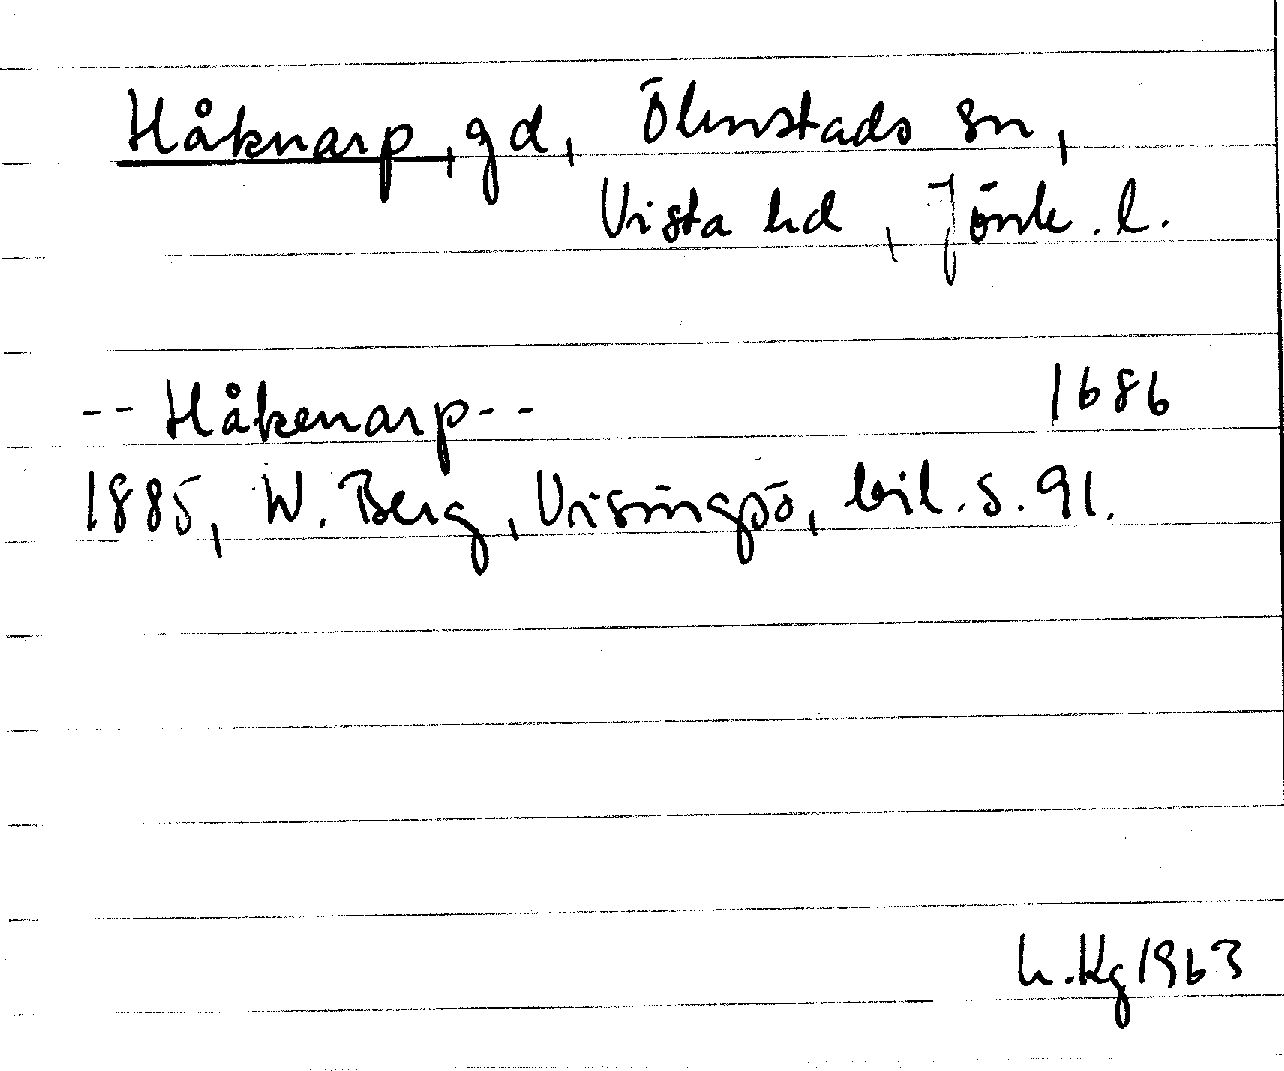 Håknarp, gd, Ölmstads sn,
Vista hd, Jönk. l.
-- Håkenarp -- 1686
1885, W. Berg, Visingsö, bil. s. 91.
h. Kg 1963